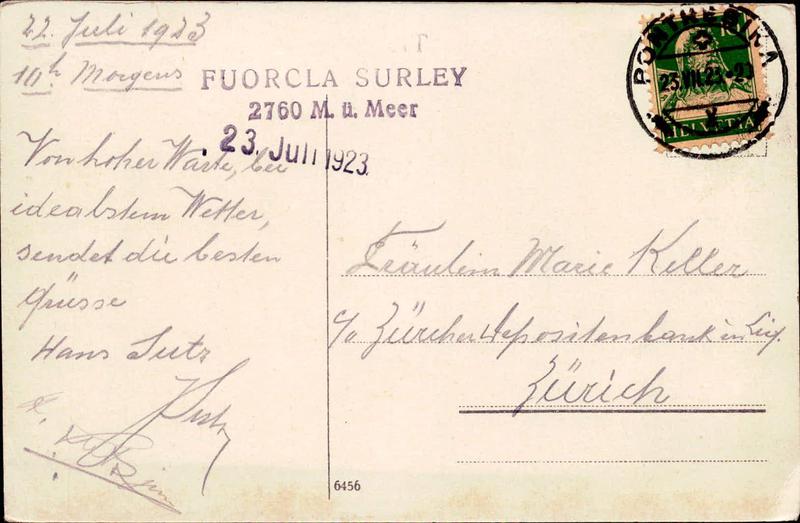 22. Juli 1923
10h Morgens
FUORCLA SURLEY
2760 M. ü. Meer
23. Juli 1923.
PONTRESINA
23.VII.23
HELVETIA
Von hoher Warte, bei
idealstem Wetter,
sendet die besten
Grüsse
Hans Lutz
Fräulein Marie Keller
c/o Zürcher Depositenbank in Liq.
Zürich
6456